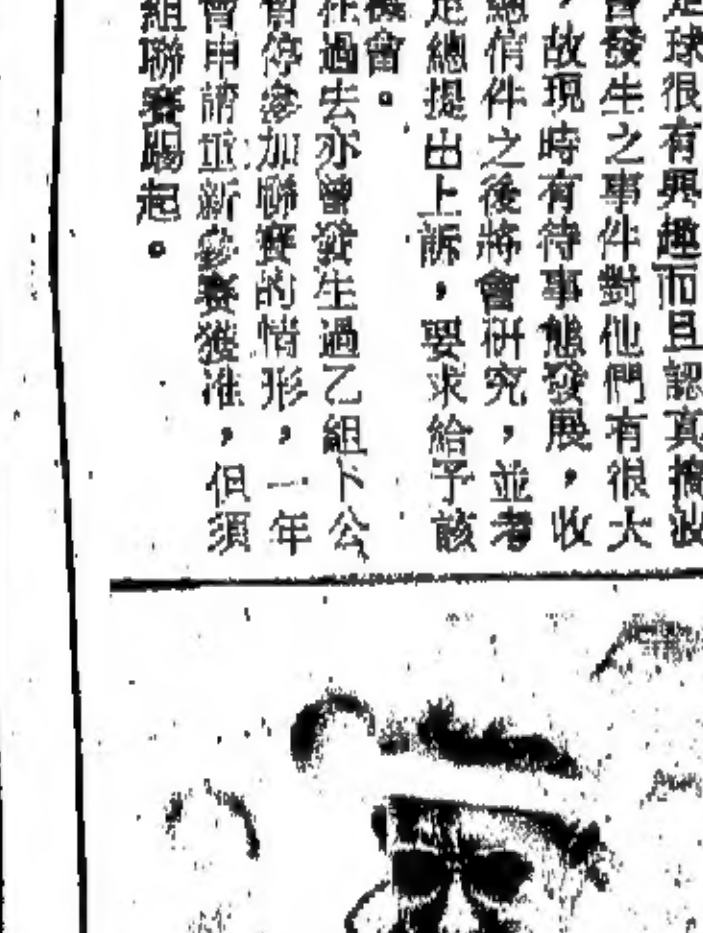 足球很有興趣而且認真搞波
會發生之事件對他們有很大
，故現時有待事態發展，收
總信件之後將會研究，並考
足總提出上訴，要求給予該
機會。
在過去亦曾發生過乙組卜公
暫停參加聯賽的情形，一年
會申請重新參賽獲准，但須
組聯賽踢起。